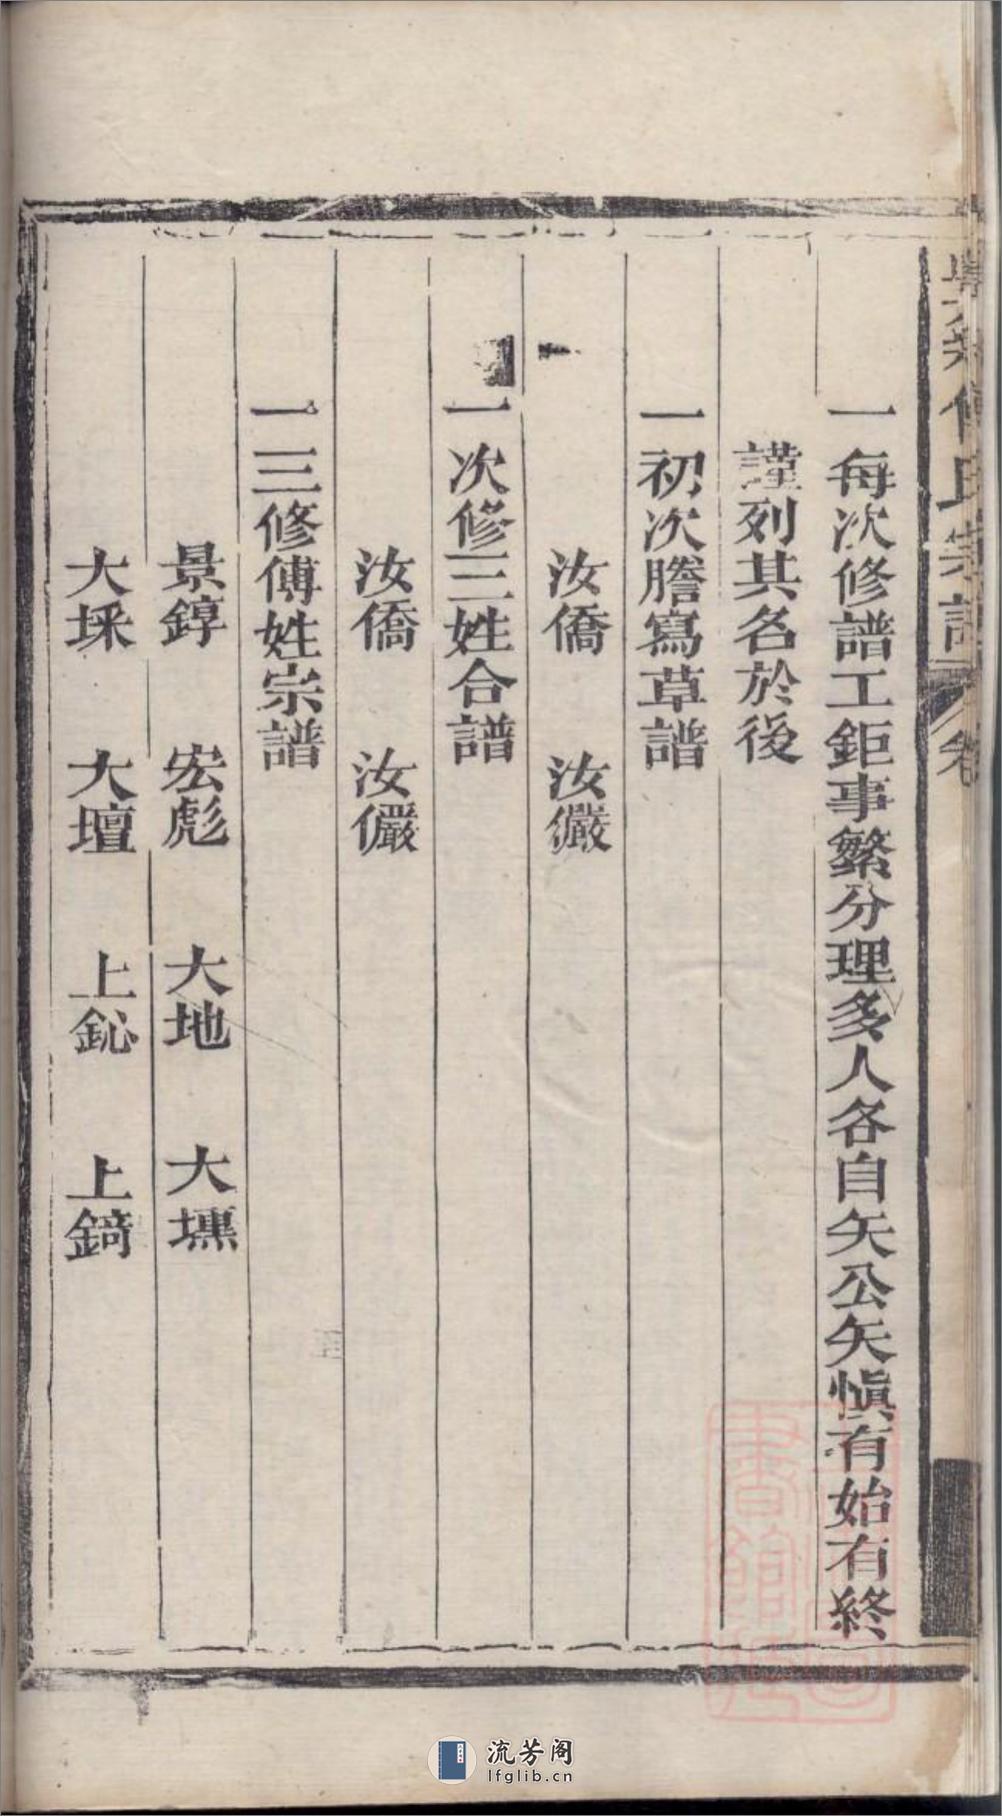 一每次修譜工鉅事繁分理多人各自矢公矢慎有始有終
謹列其名於後
一初次謄寫草譜
汝僑 汝儼
一次修三姓合譜
汝僑 汝儼
一三修傅姓宗譜
景錞 宏彪 大地 大壎
大埰 大壇 上鈊 上錡
流芳阁
lfglib.cn